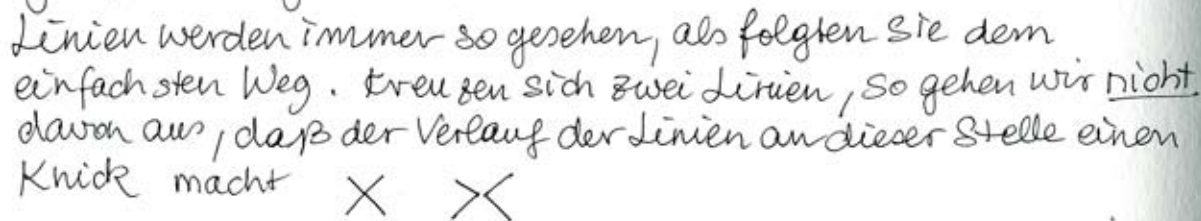 Linien werden immer so gesehen, als folgten Sie dem
einfachsten Weg. Kreuzen sich zwei Linien, so gehen wir nicht
davon aus, daß der Verlauf der Linien an dieser Stelle einen
Knick macht